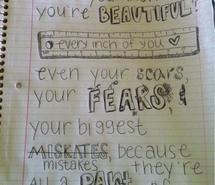 you're BEAUTIFUL
every inch of you
even your scars,
your FEARS, &
your biggest
MISKATES, because
mistakes they're
all a PART